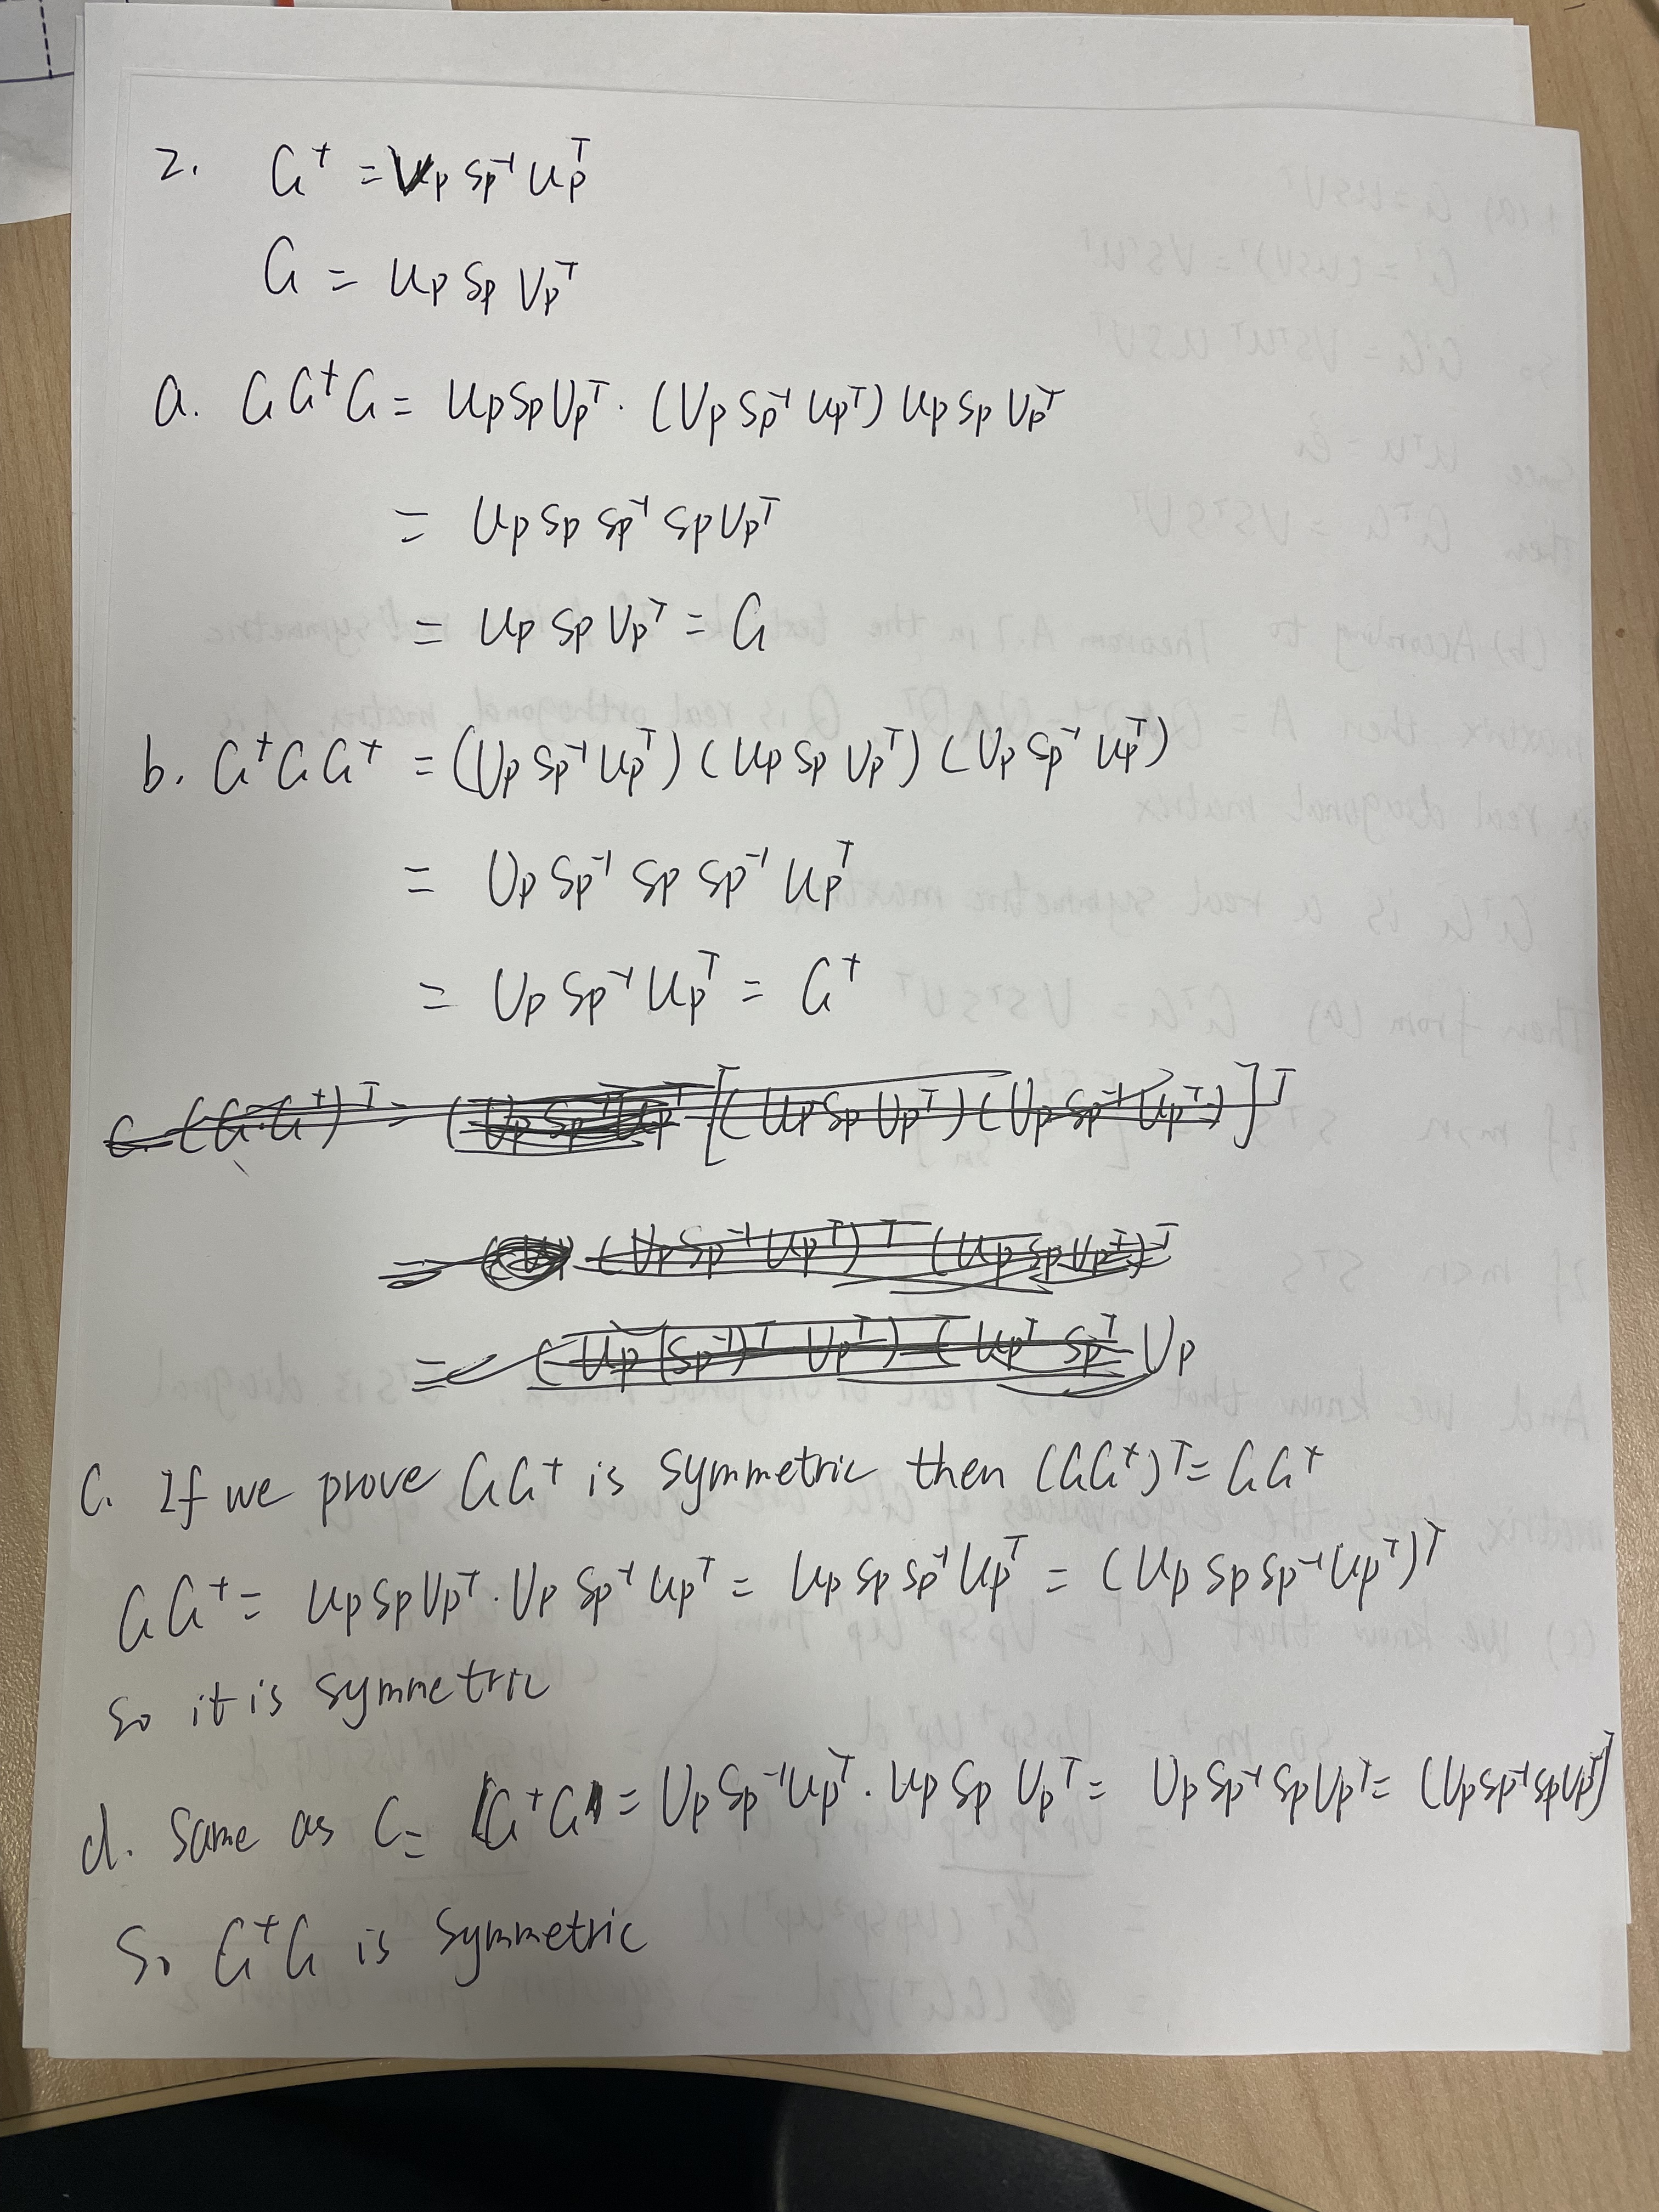 2. G⁺ = Vp Sp⁻¹ Upᵀ
G = Up Sp Vpᵀ
a. G G⁺ G = Up Sp Vpᵀ · (Vp Sp⁻¹ Upᵀ) Up Sp Vpᵀ
= Up Sp Sp⁻¹ Sp Vpᵀ
= Up Sp Vpᵀ = G
b. G⁺ G G⁺ = (Vp Sp⁻¹ Upᵀ) (Up Sp Vpᵀ) (Vp Sp⁻¹ Upᵀ)
= Vp Sp⁻¹ Sp Sp⁻¹ Upᵀ
= Vp Sp⁻¹ Upᵀ = G⁺
c. (G·G⁺)ᵀ = [(Up Sp Vpᵀ) (Vp Sp⁻¹ Upᵀ)]ᵀ
= (Vp Sp⁻¹ Upᵀ)ᵀ (Up Sp Vpᵀ)ᵀ
= (Up (Sp⁻¹)ᵀ Vpᵀ) (Upᵀ Spᵀ Vp
C. If we prove GG⁺ is symmetric then (GG⁺)ᵀ = GG⁺
GG⁺ = Up Sp Vpᵀ · Vp Sp⁻¹ Upᵀ = Up Sp Sp⁻¹ Upᵀ = (Up Sp Sp⁻¹ Upᵀ)ᵀ
So it is symmetric
d. Same as C = G⁺G = Vp Sp⁻¹ Upᵀ · Up Sp Vpᵀ = Vp Sp⁻¹ Sp Vpᵀ = (Vp Sp⁻¹ Sp Vpᵀ)ᵀ
So G⁺G is symmetric